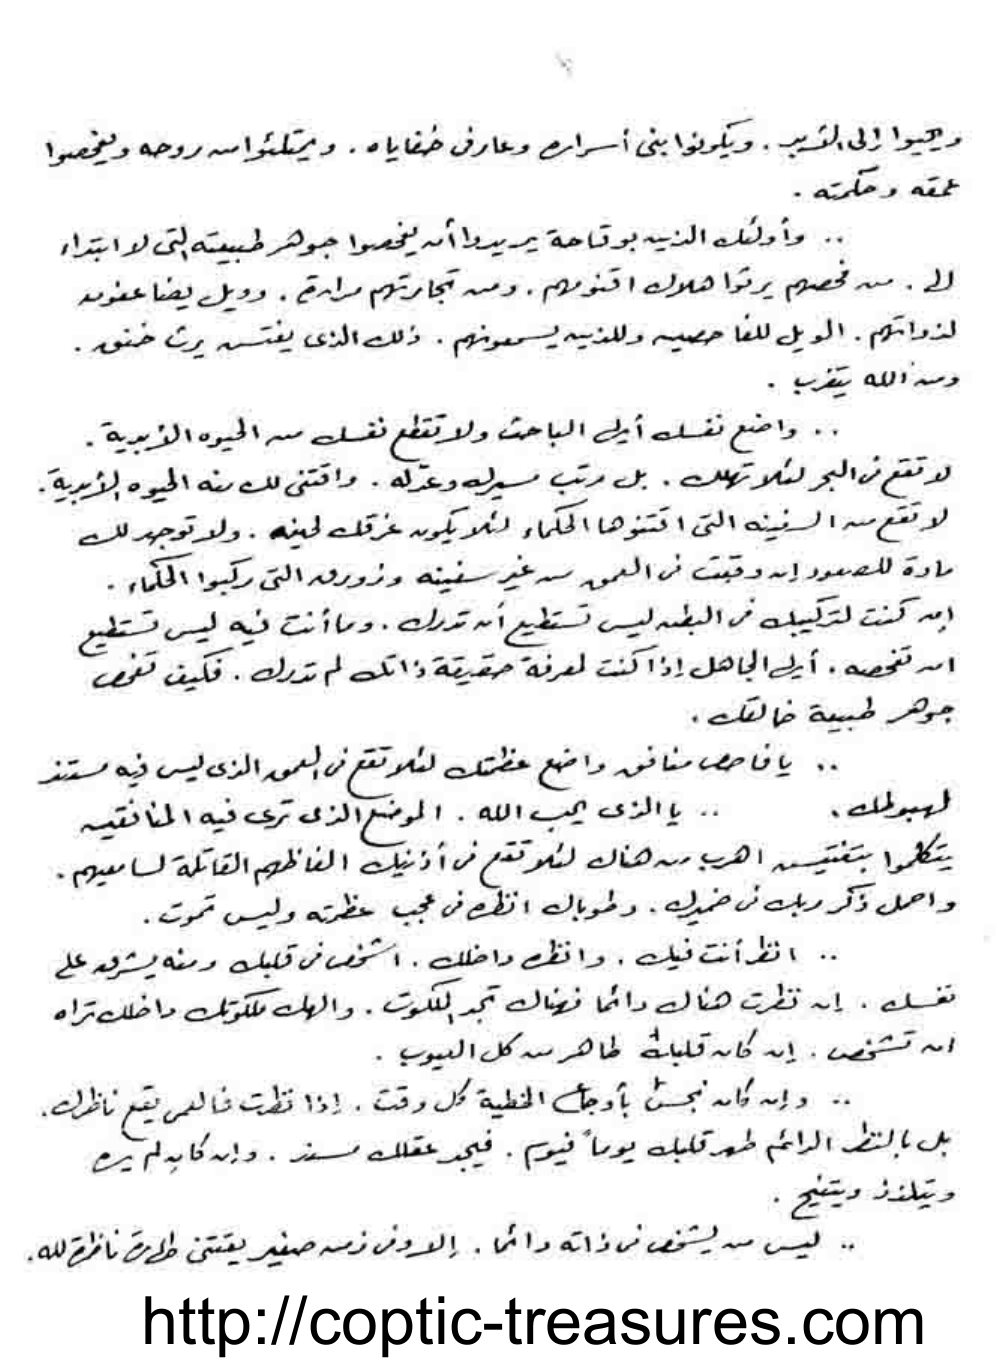 ويحيوا إلى الأبد . ويكونوا بنى أسراره وعارفى خفاياه . ويمتلئوا من روحه ويفحصوا
عمقه وحكمته .
.. وأولئك الذين بوقاحة يريدوا أن يفحصوا جوهر طبيعته التى لا ابتداء
لها . من فحصهم يرثوا هلاك اقنومهم . ومن تجارتهم مرارة . وويل يضاعفون
لذواتهم . الويل للفاحصين وللذين يسمعونهم . ذلك الذى يفتش يرث خنق .
ومن الله يتغرب .
.. واضع نفسك أيها الباحث ولا تقطع نفسك من الحيوه الأبدية .
لا تقع فى البحر لئلا تهلك . بل رتب مسيرك وعدله . واقتنى لك منه الحيوه الأبدية .
لا تقع من السفينه التى اقتنوها الحكماء لئلا يكون غرقك لحينه . ولا توجد لك
مادة للصعود إن وقعت فى العمق من غير سفينه وزورق التى ركبوا الحكماء .
إن كنت لتركيبك فى البطن ليس تستطيع أن تدرك . وما أنت فيه ليس تستطيع
ان تفحصه . أيها الجاهل إذا كنت لمعرفة حقيقة ذاتك لم تدرك . فكيف تفحص
جوهر طبيعة خالقك .
.. يا فاحص منافق واضع عظمتك لئلا تقع فى العمق الذى ليس فيه مستند
لهبوطك . .. يا الذى يحب الله . الموضع الذى ترى فيه المنافقين
يتكلموا بتفتيش اهرب من هناك لئلا تقع فى أذنيك الفاظهم القاتلة لسامعيهم .
واحمل ذكر ربك فى ضميرك . وطوباك انظره فى عجب عظمته وليس تموت .
.. انظر أنت فيك . وانظره داخلك . اشخص فى قلبك ومنه يشرق على
نفسك . إن نظرت هناك دائما فهناك تجد الملكوت . والهك ملكوتك داخلك تراه
ان تشخص . إن كان قلبك طاهر من كل العيوب .
.. وإن كان نجس بأوجاع الخطية كل وقت . إذا نظرت فالعمى يقع ناظرك .
بل بالنظر الدائم طهر قلبك يوماً فيوم . فيجد عقلك مسند . وإن كان لم يره
ويتلذذ ويتنيح .
.. ليس من يشخص فى ذاته دائما . إلا وفى زمن صغير يقتنى طهارة ناظرة لله .
http://coptic-treasures.com